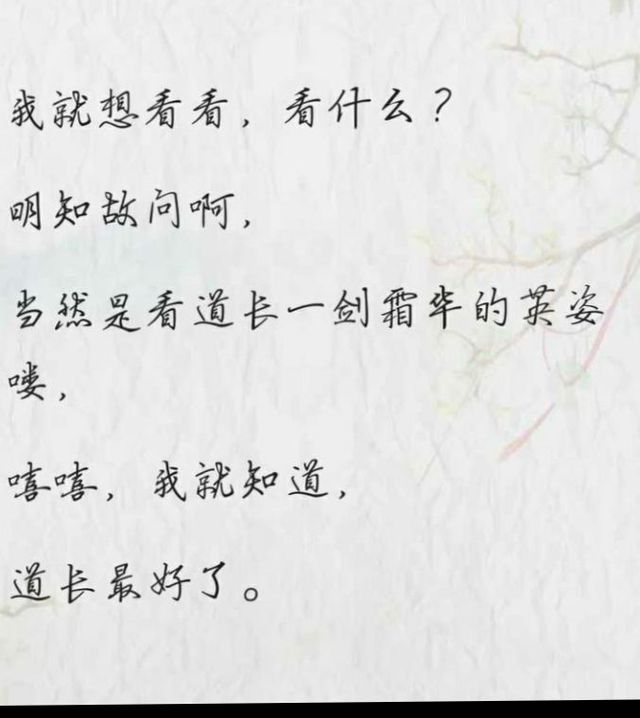 我就想看看，看什么？
明知故问啊，
当然是看道长一剑霜华的英姿
喽，
嘻嘻，我就知道，
道长最好了。